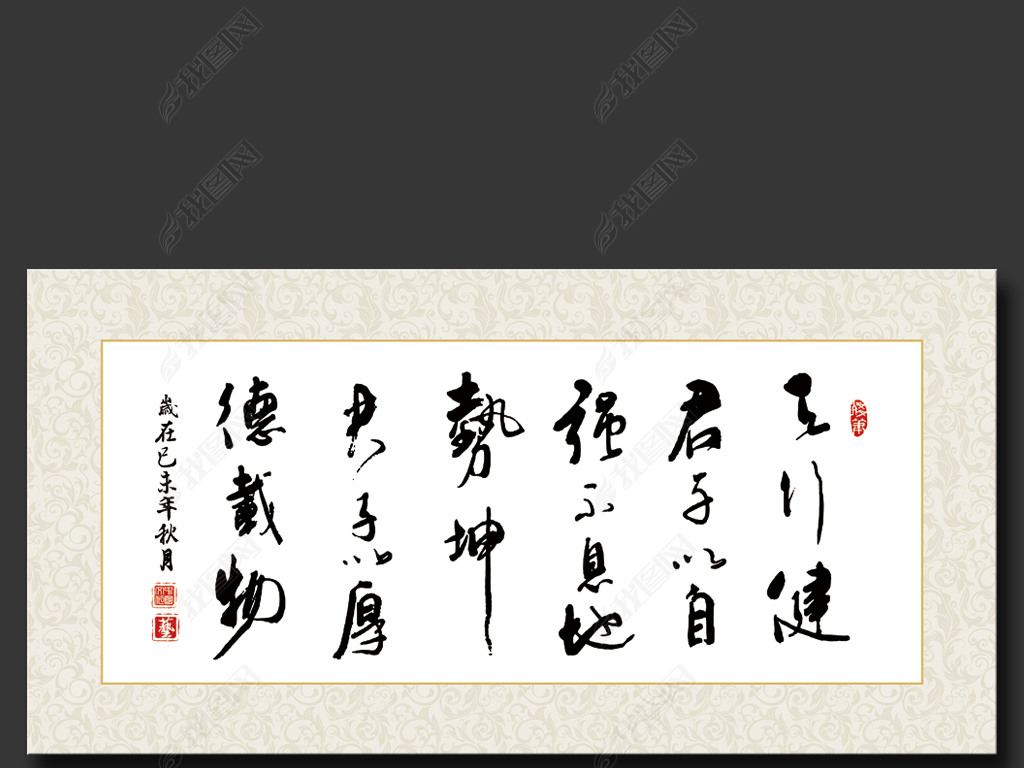 天行健
君子以自
强不息地
勢坤
君子以厚
德載物
歲在己未年秋月
藝
我图网